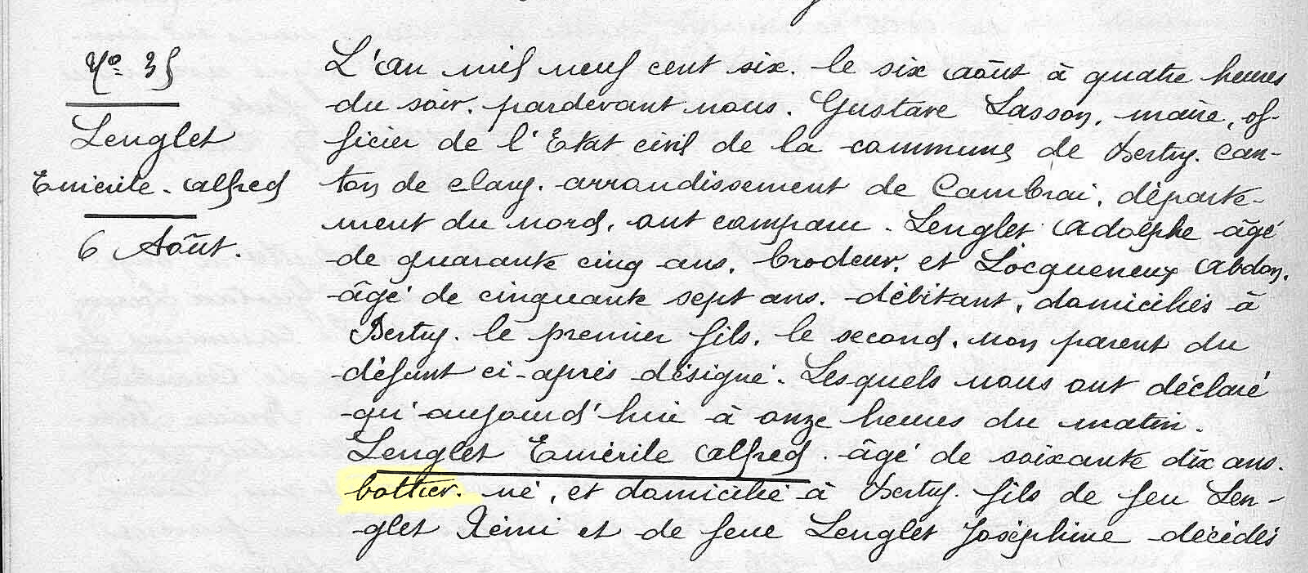 N° 35
Lenglet
Emérile Alfred
6 Août.
L'an mil neuf cent six. le six août à quatre heures
du soir. pardevant nous. Gustave Lasson, maire, of-
ficier de l'Etat civil de la commune de Bertry. can-
ton de Clary. arrondissement de Cambrai, départe-
ment du nord, ont comparu. Lenglet Adolphe âgé
de quarante cinq ans, brodeur, et Locqueneux Abdon,
âgé de cinquante sept ans. débitant, domiciliés à
Bertry. le premier fils, le second, non parent du
défunt ci-après désigné. Lesquels nous ont déclaré
qu'aujourd'hui à onze heures du matin.
Lenglet Emérile Alfred. âgé de soixante dix ans.
bottier. né, et domicilié à Bertry. fils de feu Len-
glet Rémi et de feue Lenglet Joséphine décédés